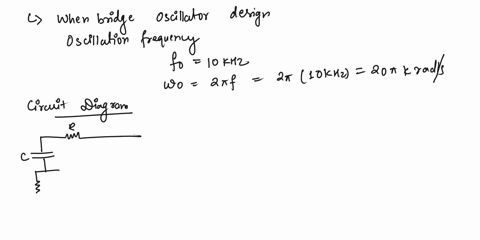 ↳ When bridge Oscillator design
Oscillation frequency
f₀ = 10 kHz
ω₀ = 2πf = 2π (10kHz) = 20π k rad/s
Circuit Diagram
R
C